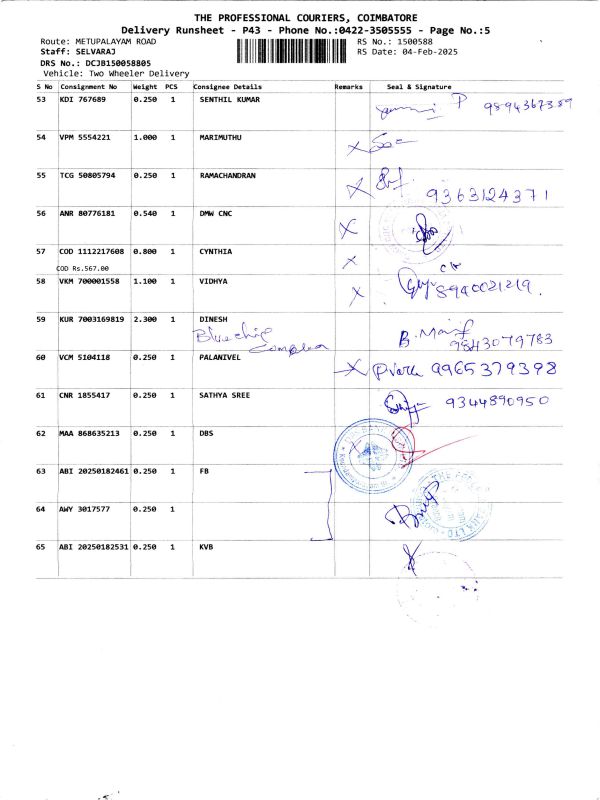 THE PROFESSIONAL COURIERS, COIMBATORE
Delivery Runsheet - P43 - Phone No.:0422-3505555 - Page No.:5
Route: METUPALAYAM ROAD RS No.: 1500588
Staff: SELVARAJ RS Date: 04-Feb-2025
DRS No.: DCJB150058805
Vehicle: Two Wheeler Delivery
S No Consignment No Weight PCS Consignee Details Remarks Seal & Signature
53 KDI 767689 0.250 1 SENTHIL KUMAR 9894367389
54 VPM 5554221 1.000 1 MARIMUTHU
55 TCG 50805794 0.250 1 RAMACHANDRAN 9363124371
56 ANR 80776181 0.540 1 DMW CNC
57 COD 1112217608 0.800 1 CYNTHIA
COD Rs.567.00
58 VKM 700001558 1.100 1 VIDHYA 8940021219.
59 KUR 7003169819 2.300 1 DINESH
Bluechip B. 9843079783
60 VCM 5104118 0.250 1 PALANIVEL 9965379398
61 CNR 1855417 0.250 1 SATHYA SREE 9344890950
62 MAA 868635213 0.250 1 DBS
63 ABI 20250182461 0.250 1 FB
64 AWY 3017577 0.250 1
65 ABI 20250182531 0.250 1 KVB